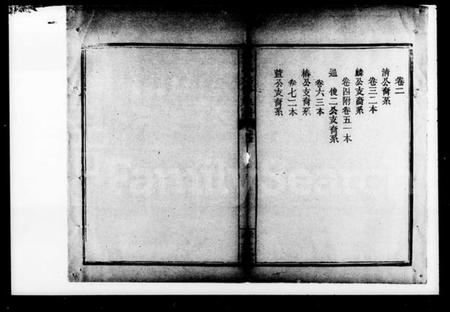 卷二
清公裔系
卷三二本
麟公支裔系
卷四附卷五一本
遇 俊二公支裔系
卷六三本
椿公支裔系
卷七二本
公支裔系
FamilySearch